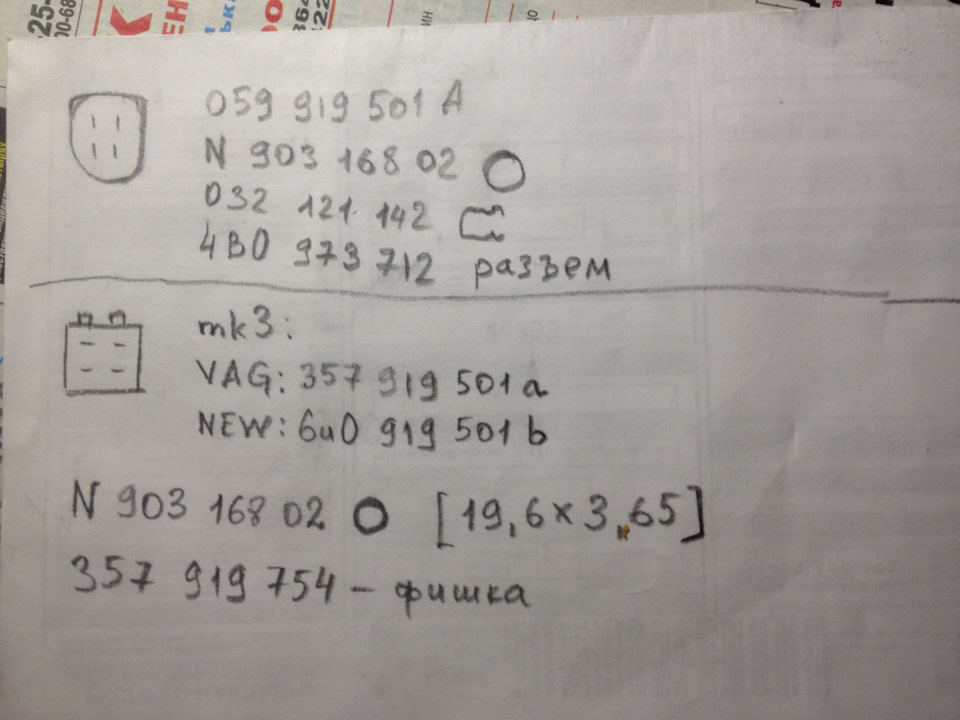 25-
00-68
К
ЕН
ька
ОО
364
22
ин
059 919 501 A
N 903 168 02
032 121 142
4B0 973 712 разъем
mk3:
VAG: 357 919 501 a
NEW: 6u0 919 501 b
N 903 168 02 [19,6x3,65]
357 919 754 - фишка